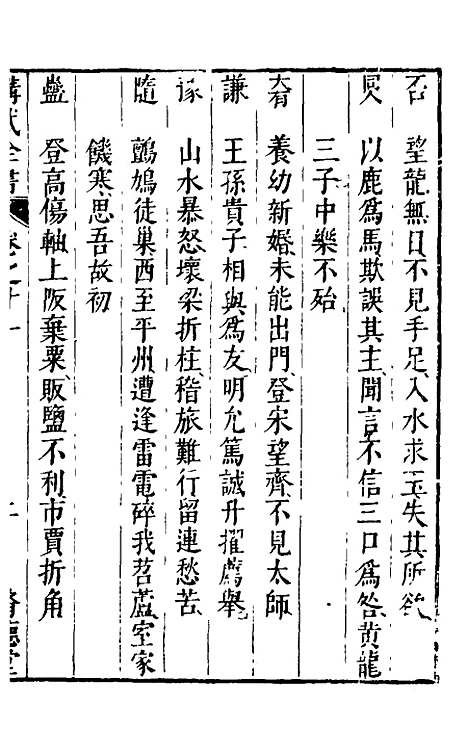 否　望龍無目不見手足入水求玉失其所欲
　　以鹿爲馬欺誤其主聞言不信三口爲咎黄龍
　　三子中樂不殆
　　養幼新婚未能出門登宋望齊不見太師
謙　王孫貴子相與爲友明允篤誠升擢薦舉
　　山水暴怒壞梁折柱稽旅難行留連愁苦
隨　鸇鳩徒巢西至平州遭逢雷電碎我苕蘆室家
　　饑寒思吾故初
蠱　登高傷軸上阪棄粟販鹽不利市賈折角
講武全書　卷之十一